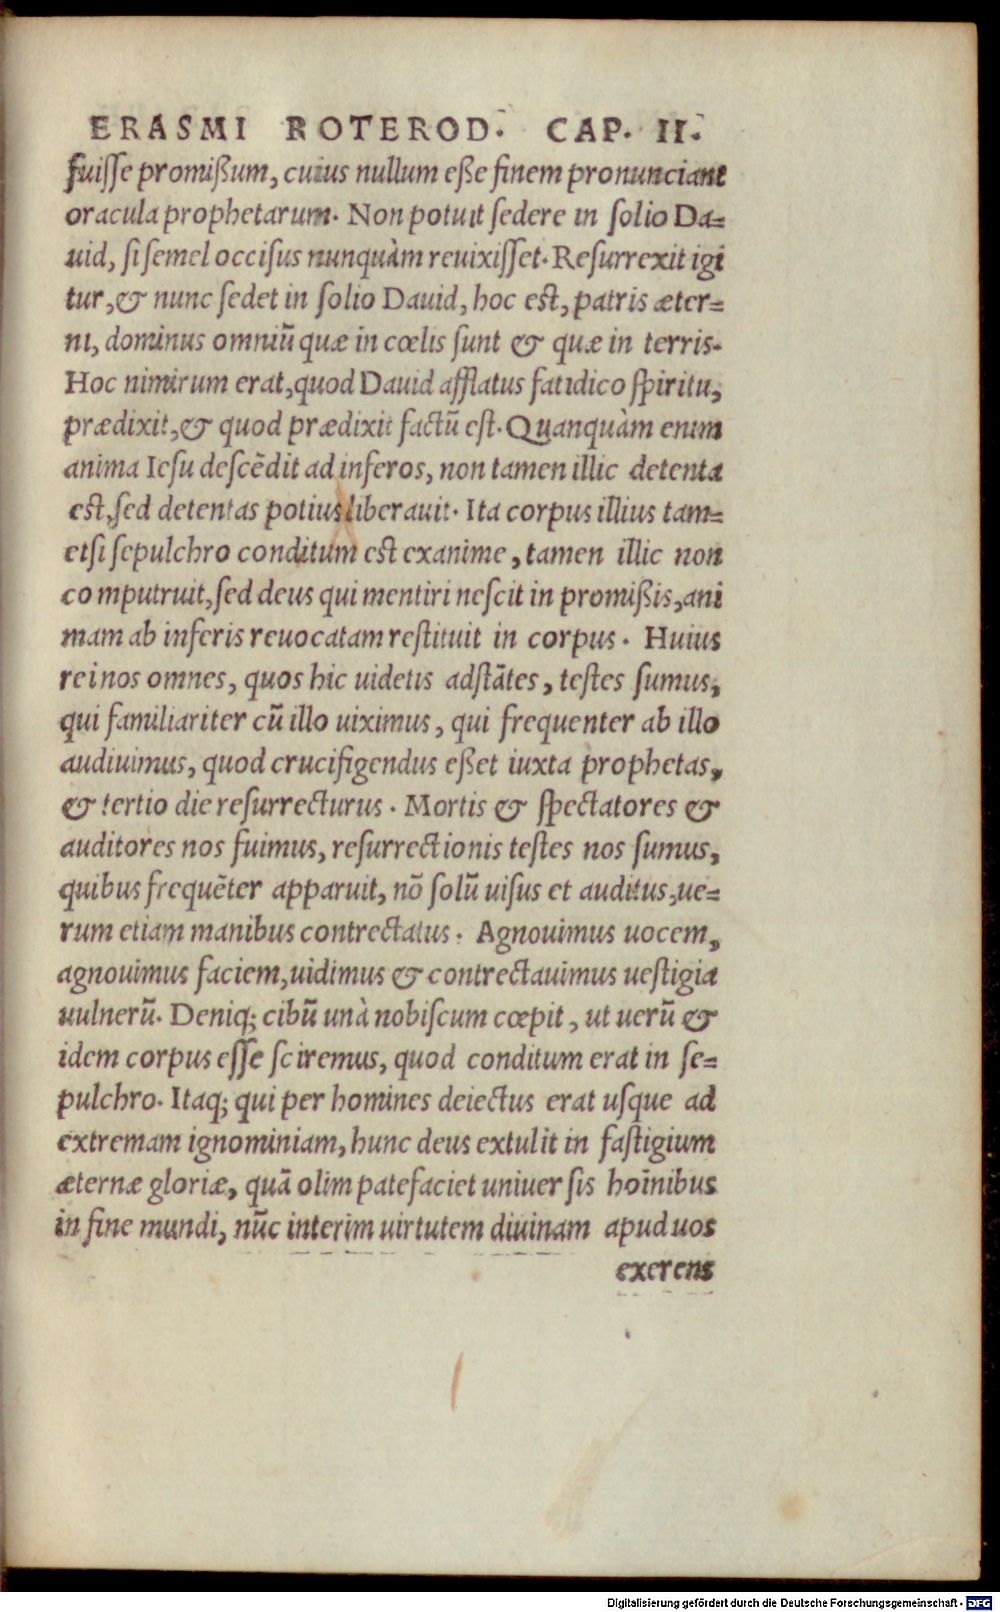 ERASMI ROTEROD. CAP. II.
fuisse promißum, cuius nullum eße finem pronunciant
oracula prophetarum. Non potuit sedere in solio Da=
uid, si semel occisus nunquàm reuixisset. Resurrexit igi
tur, & nunc sedet in solio Dauid, hoc est, patris æter=
ni, dominus omniũ quæ in cœlis sunt & quæ in terris.
Hoc nimirum erat, quod Dauid afflatus fatidico spiritu,
prædixit, & quod prædixit factũ est. Quanquàm enim
anima Iesu descẽdit ad inferos, non tamen illic detenta
est, sed detentas potius liberauit. Ita corpus illius tam=
etsi sepulchro conditum est exanime, tamen illic non
computruit, sed deus qui mentiri nescit in promißis, ani
mam ab inferis reuocatam restituit in corpus. Huius
rei nos omnes, quos hic uidetis adstãtes, testes sumus,
qui familiariter cũ illo uiximus, qui frequenter ab illo
audiuimus, quod crucifigendus eßet iuxta prophetas,
& tertio die resurrecturus. Mortis & spectatores &
auditores nos fuimus, resurrectionis testes nos sumus,
quibus frequẽter apparuit, nõ solũ uisus et auditus, ue=
rum etiam manibus contrectatus. Agnouimus uocem,
agnouimus faciem, uidimus & contrectauimus uestigia
uulnerũ. Deniq; cibũ unà nobiscum cœpit, ut uerũ &
idem corpus esse sciremus, quod conditum erat in se=
pulchro. Itaq; qui per homines deiectus erat usque ad
extremam ignominiam, hunc deus extulit in fastigium
æternæ gloriæ, quã olim patefaciet uniuersis hoĩnibus
in fine mundi, nũc interim uirtutem diuinam apud uos
exerens
Digitalisierung gefördert durch die Deutsche Forschungsgemeinschaft - DFG